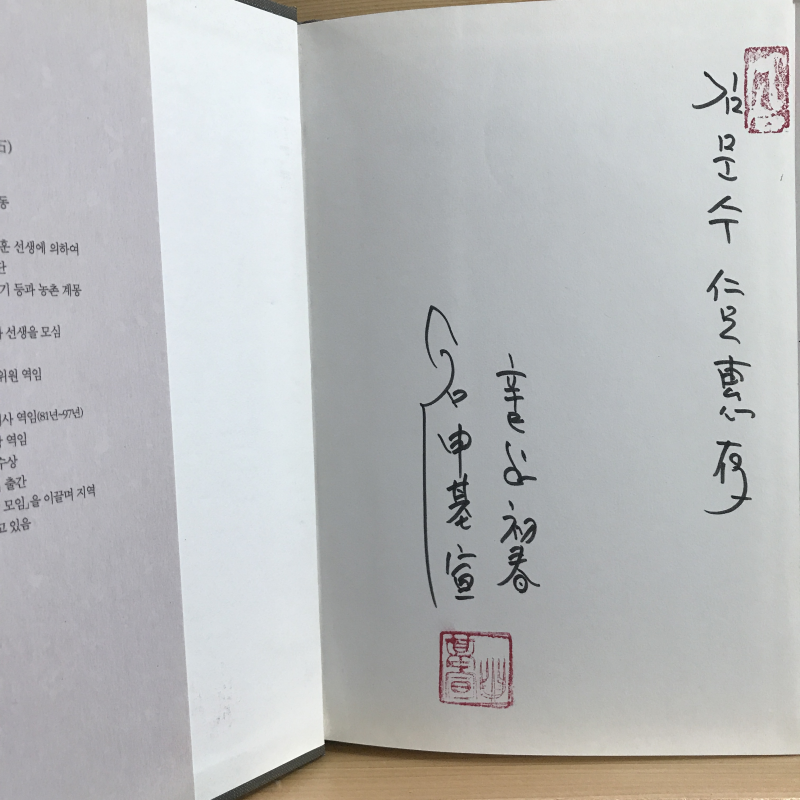 石)
동
훈 선생에 의하여
단
기 등과 농촌 계몽
선생을 모심
위원 역임
사 역임(81년~97년)
역임
수상
출간
모임」을 이끌며 지역
고 있음
김문수 仁兄 惠存
辛巳 初春
石 申基宣